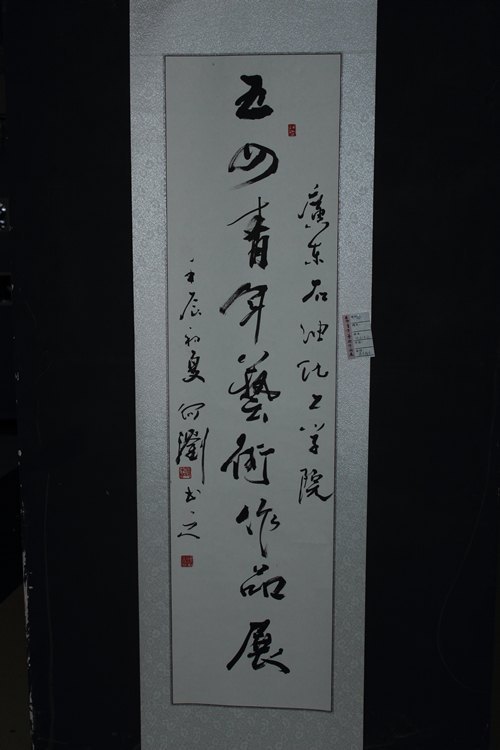 廣东石油化工学院
五四青年藝術作品展
壬辰初夏何瀏书之